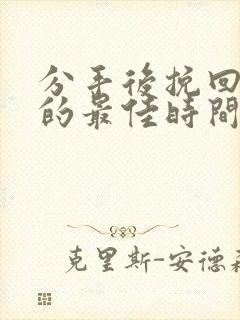 分手後挽回
的最佳時間
克里斯-安德森